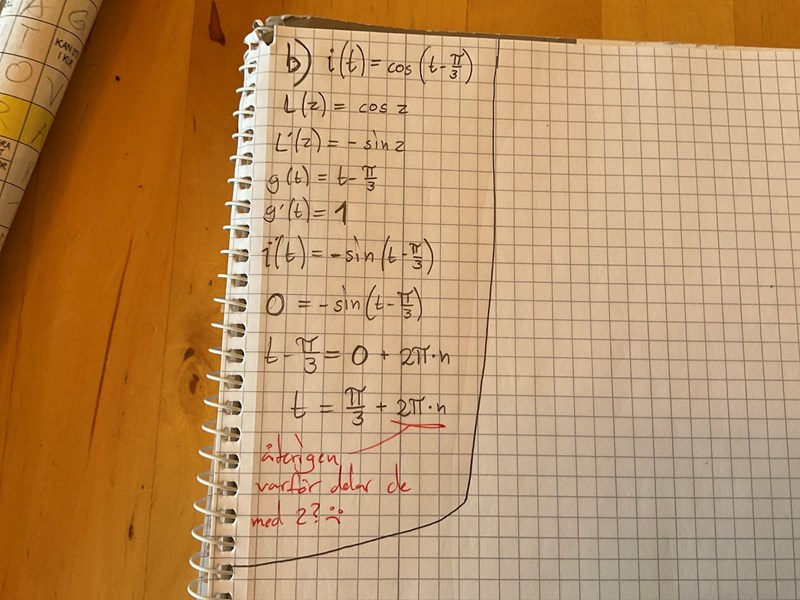 b) i(t) = cos(t - π/3)
L(z) = cos z
L'(z) = - sin z
g(t) = t - π/3
g'(t) = 1
i'(t) = - sin(t - π/3)
0 = - sin(t - π/3)
t - π/3 = 0 + 2π·n
t = π/3 + 2π·n
återigen
varför delar de
med 2? :(